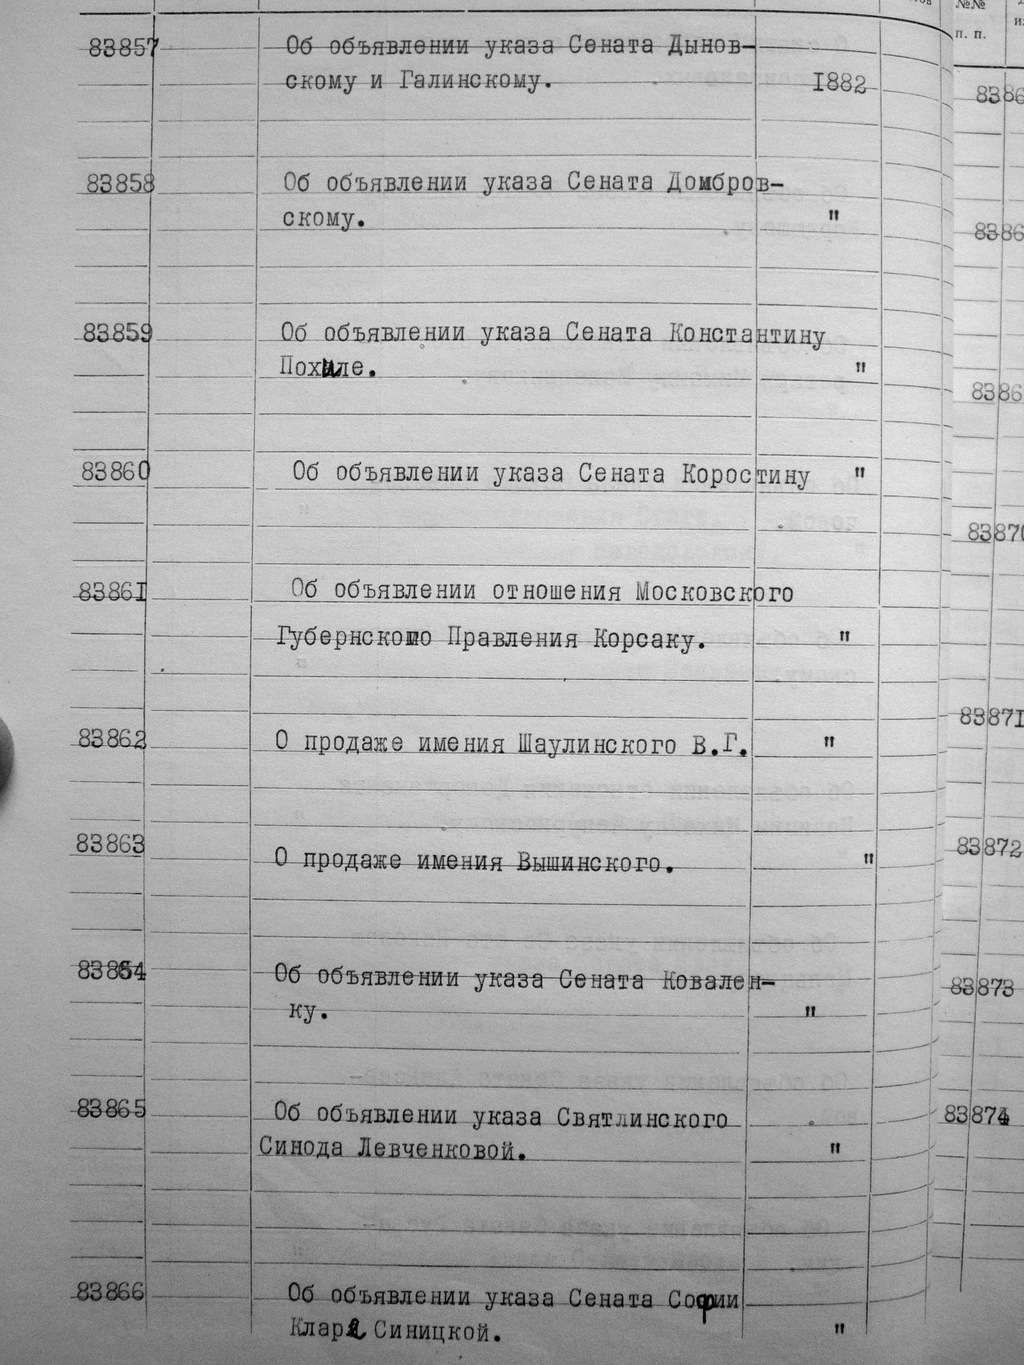 83857 Об объявлении указа Сената Дынов-
скому и Галинскому. 1882
83858 Об объявлении указа Сената Домбров-
скому. "
83859 Об объявлении указа Сената Константину
Похиле. "
83860 Об объявлении указа Сената Коростину "
83861 Об объявлении отношения Московского
Губернского Правления Корсаку. "
83862 О продаже имения Шаулинского В.Г. "
83863 О продаже имения Вышинского. "
83864 Об объявлении указа Сената Ковален-
ку. "
83865 Об объявлении указа Святлинского
Синода Левченковой. "
83866 Об объявлении указа Сената Софии
Кларе Синицкой. "
№№
п. п.
83870
83871
83872
83873
83874